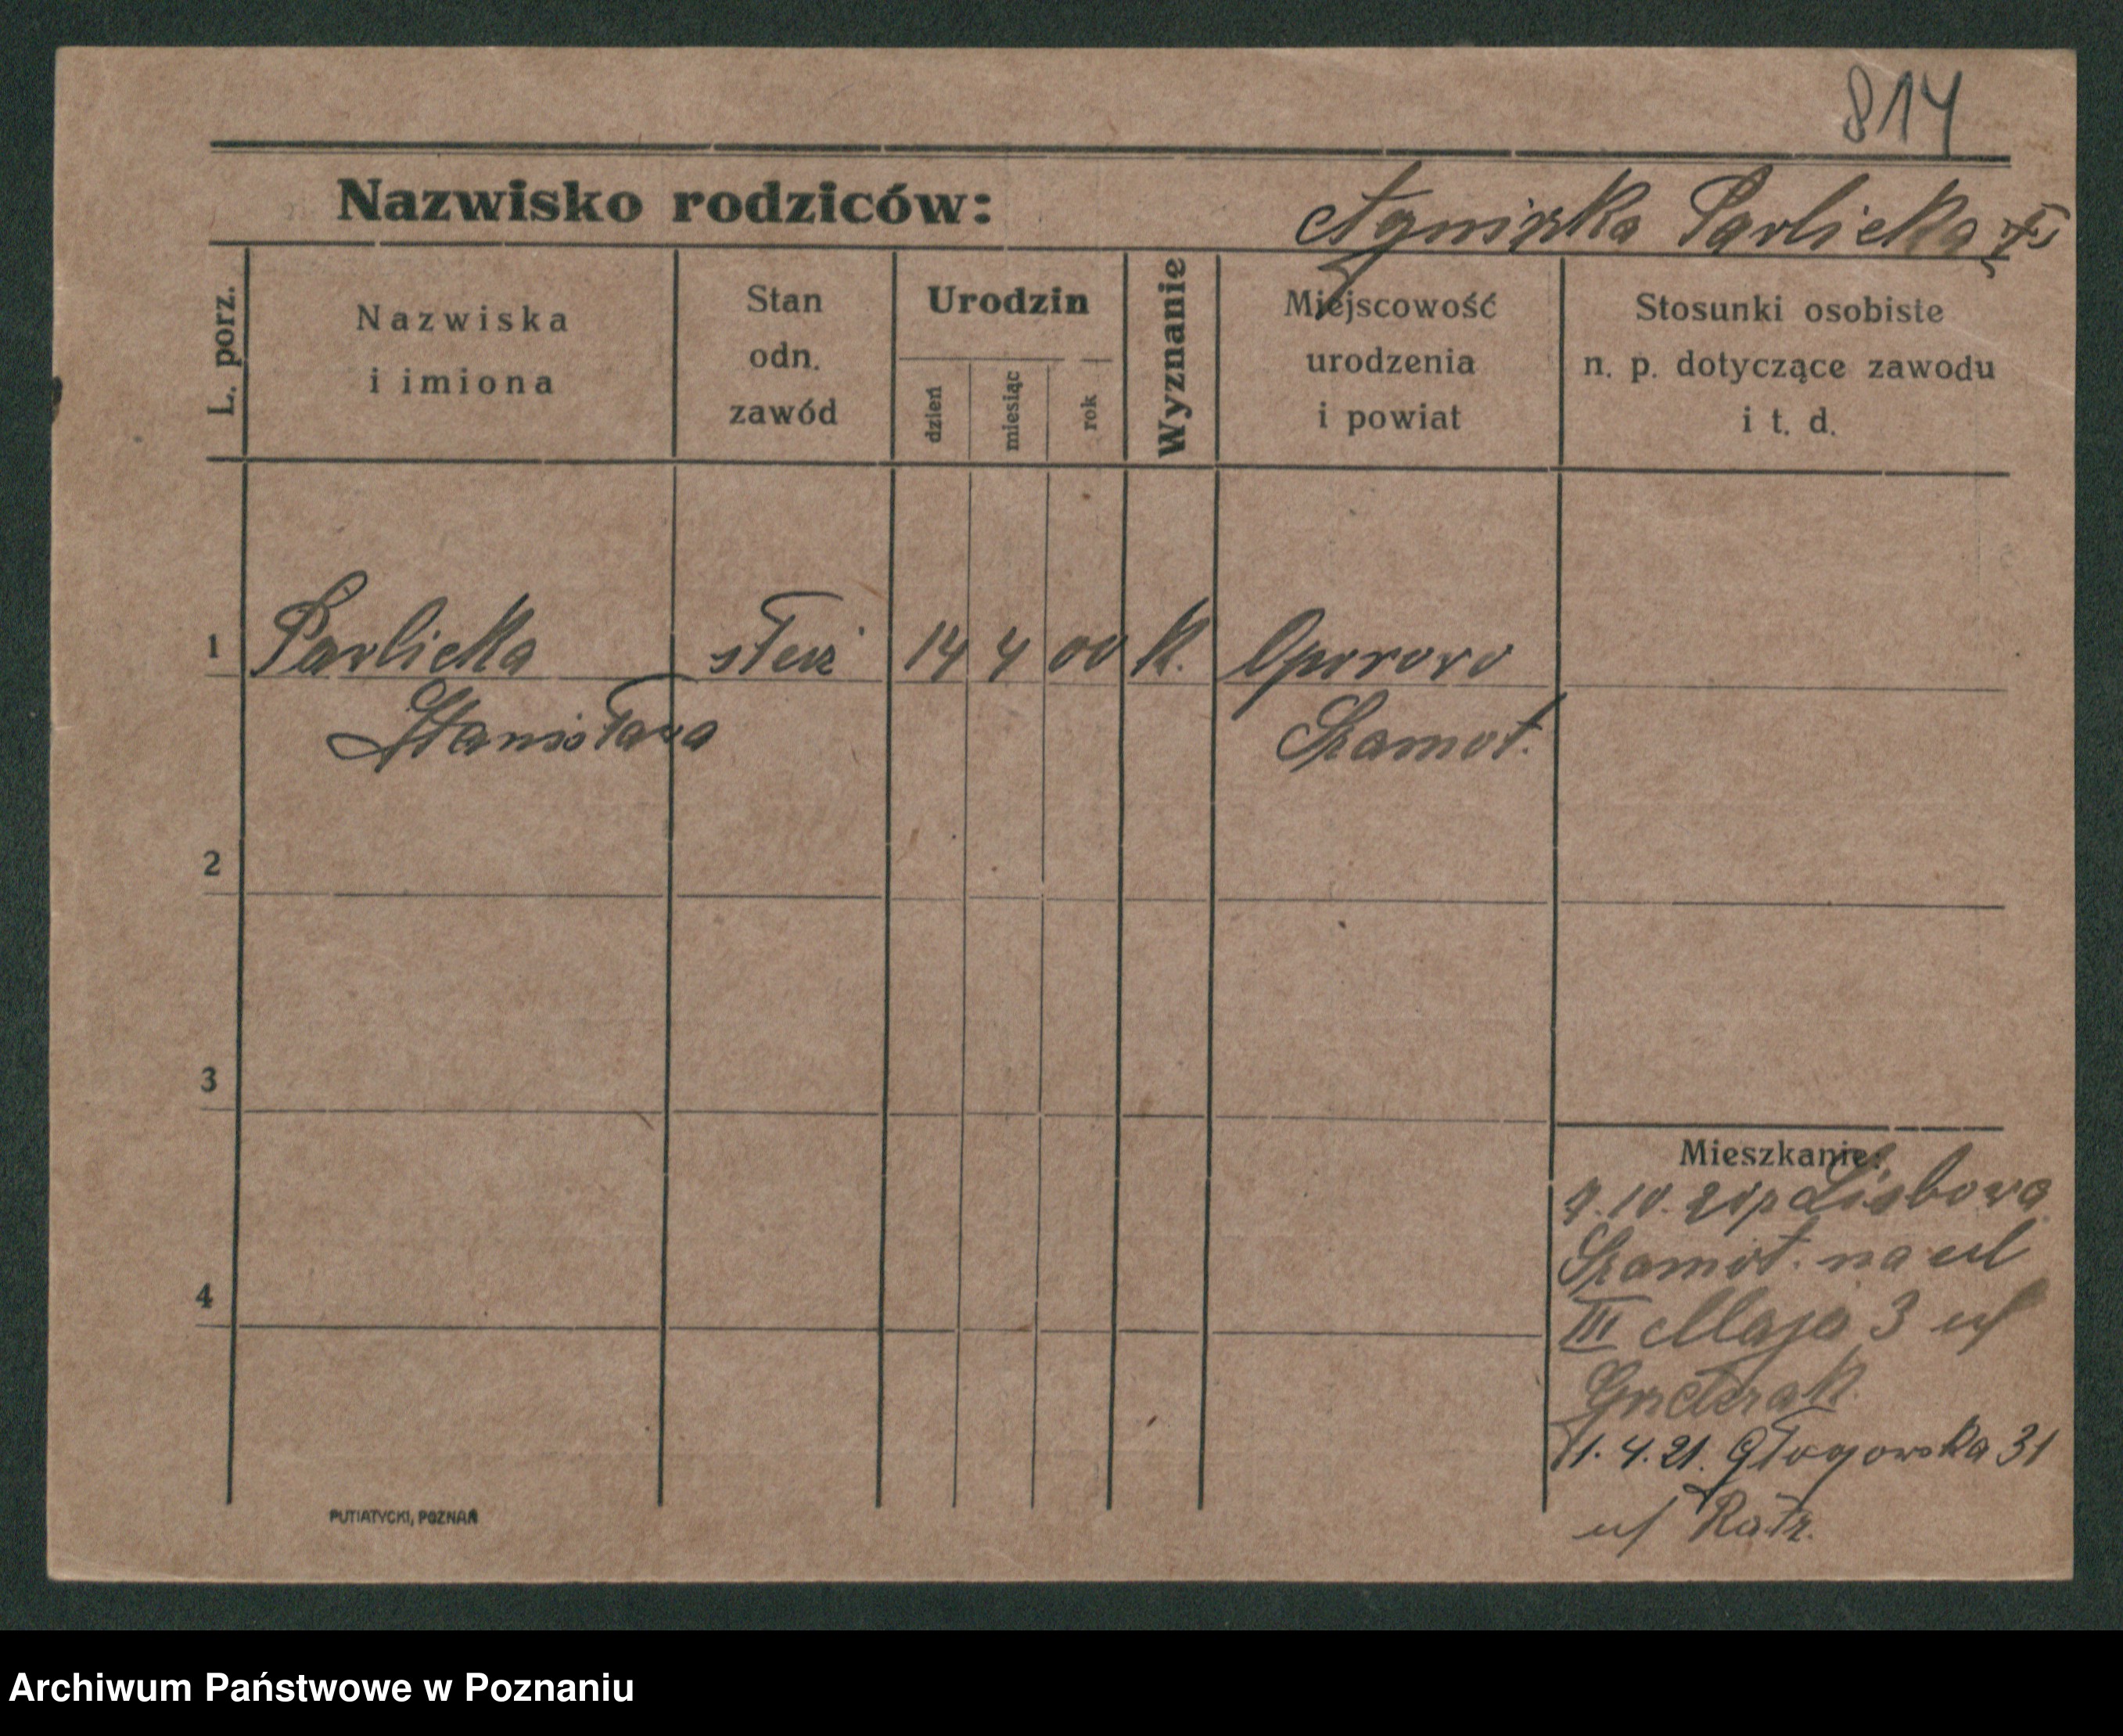 814
Nazwisko rodziców: Agnieszka Pawlicka
L. porz.
Nazwiska
i imiona
Stan
odn.
zawód
Urodzin
dzień
miesiąc
rok
Wyznanie
Miejscowość
urodzenia
i powiat
Stosunki osobiste
n. p. dotyczące zawodu
i t. d.
1 Pawlicka służ 14 4 00 K. Oporowo
Stanisława Szamot.
2
3
4
Mieszkanie:
Szamot. na ul
III Maja 3 u/
1. 4. 21. Głogowska 31
u/ Ratz.
PUTIATYCKI, POZNAŃ
Archiwum Państwowe w Poznaniu